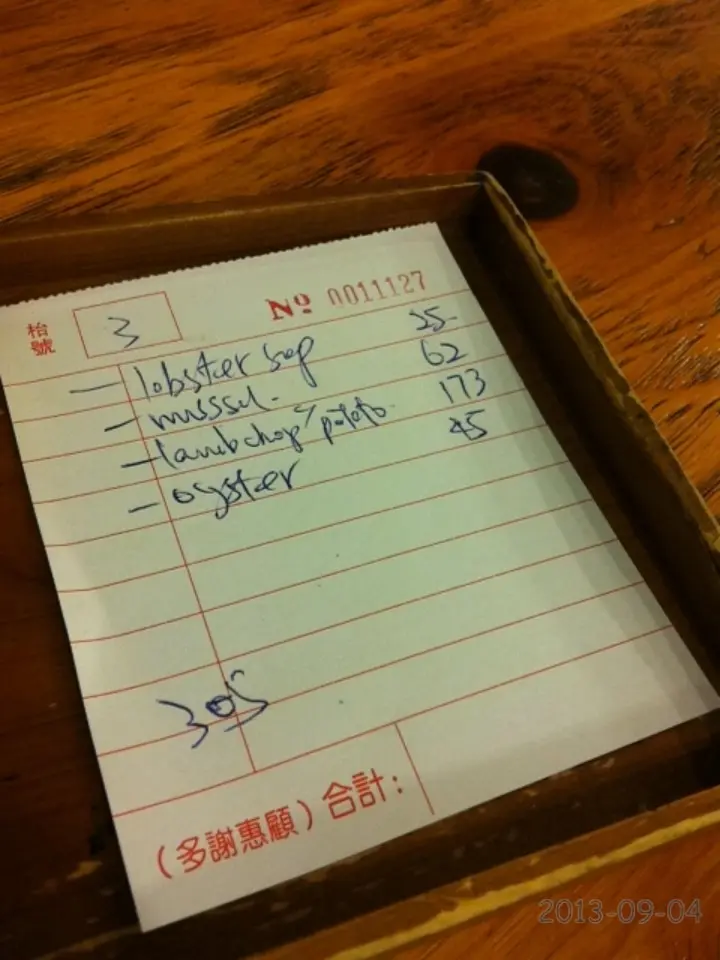 枱號 3 Nº 0011127
— lobster sop 25-
— mussel. 62
— lamb chop / potato. 173
— oyster 45
305
(多謝惠顧) 合計:
2013-09-04